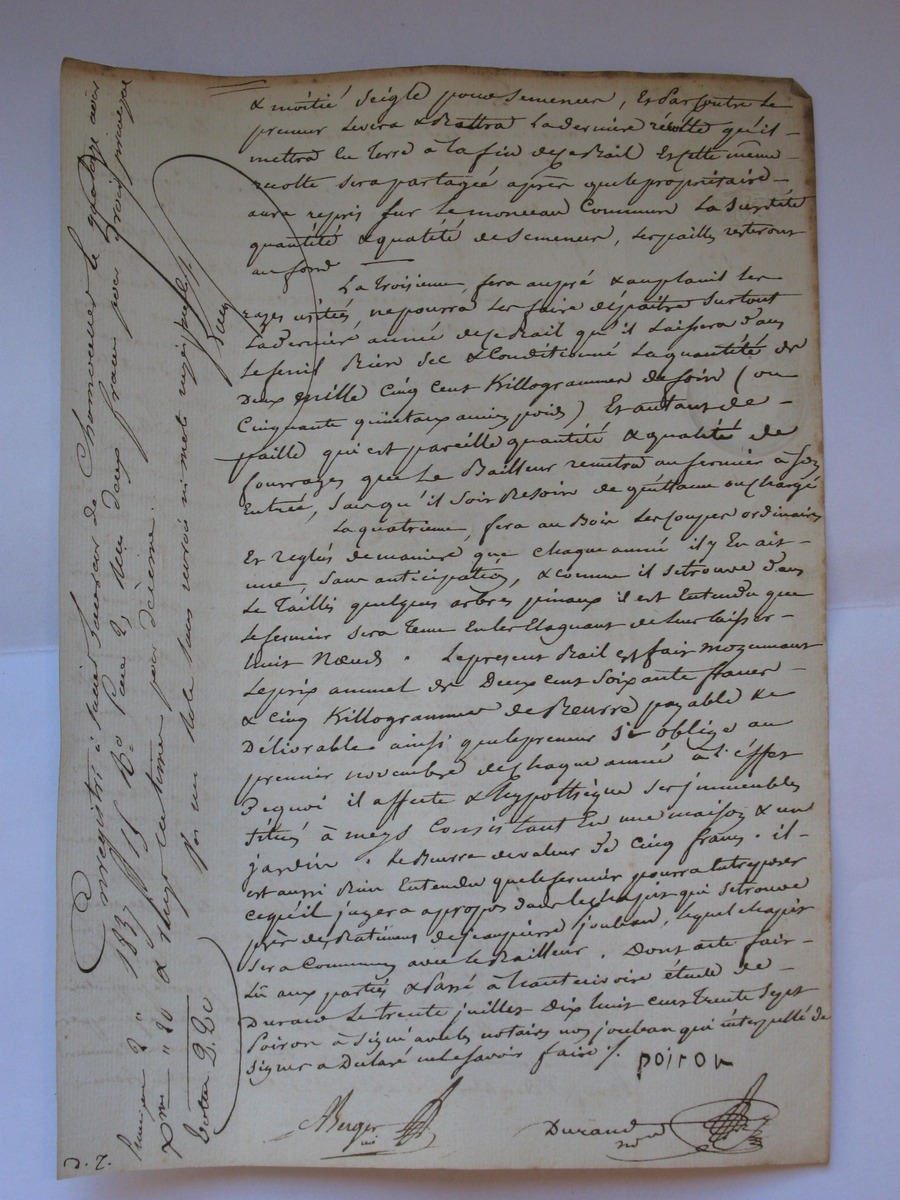 & moitié seigle pour semencer, Et Par Contre Le
preneur Levera & Battra La dernière récolte qu'il
mettra En Terre à la fin de ce Bail Et cette même
récolte sera partagée après que le propriétaire
aura repris sur Le monceau Commun La susdite
quantité & qualité de semences, les pailles resteront
au fond
La Troisieme, fera au pré & au planil les
razes usitées, ne pourra les faire dépaître surtout
La dernière année de ce Bail qu'il Laissera dans
Le fenil Bien sec & Conditionné La quantité de
Deux mille Cinq Cent Killogrammes de foin (ou
Cinquante quintaux ancien poids) Et autant de
paille qui est pareille quantité & qualité de
fourrages que Le Bailleur remettra au fermier à son
Entrée, sans qu'il soit Besoin de quittance ou Chargé
La quatrieme, fera au Bois Les Coupes ordinaires
Et reglés de maniere que chaque année il y En ait
une, sans anticipation, & comme il se trouve dans
Le Taillis quelques arbres pinaux il est Entendu que
Le fermier sera Tenu En les Elaguant de leur laisser
huit Nœuds. Le présent Bail est fait moyennant
Le prix annuel de Deux cent soixante francs
& Cinq Killogrammes de Beurre payable &
Délivrable ainsi que le preneur s'y oblige au
premier novembre de chaque année à L'effet
De quoi il affecte & hypothèque ses immeubles
situés à meys Consistant En une maison & un
jardin. Le Beurre de valeur de Cinq francs. il
est aussi Bien Entendu que le fermier pourra Entreposer
ce qu'il jugera apropos dans le chapit qui se trouve
près des Batimens de jean pierre jouban, lequel chapit
sera Commun avec le Bailleur. Dont acte fait
Lu aux parties & Passé à hauterivoire étude de
Durand Le trente juillet Dix huit cent Trente Sept
Poiron à signé avec les notaires non jouban qui interpellé de
signer a Déclaré ne le savoir faire ./.
poiron
Berger
Durand
nre
Enregistré à saint Laurent de Chamousset le quatorze août
1837 f° 15 R° Case 2, Reçu Deux francs pour trois
& vingt centimes pour décime.
sans renvoi ni mot rayé
D. 2.